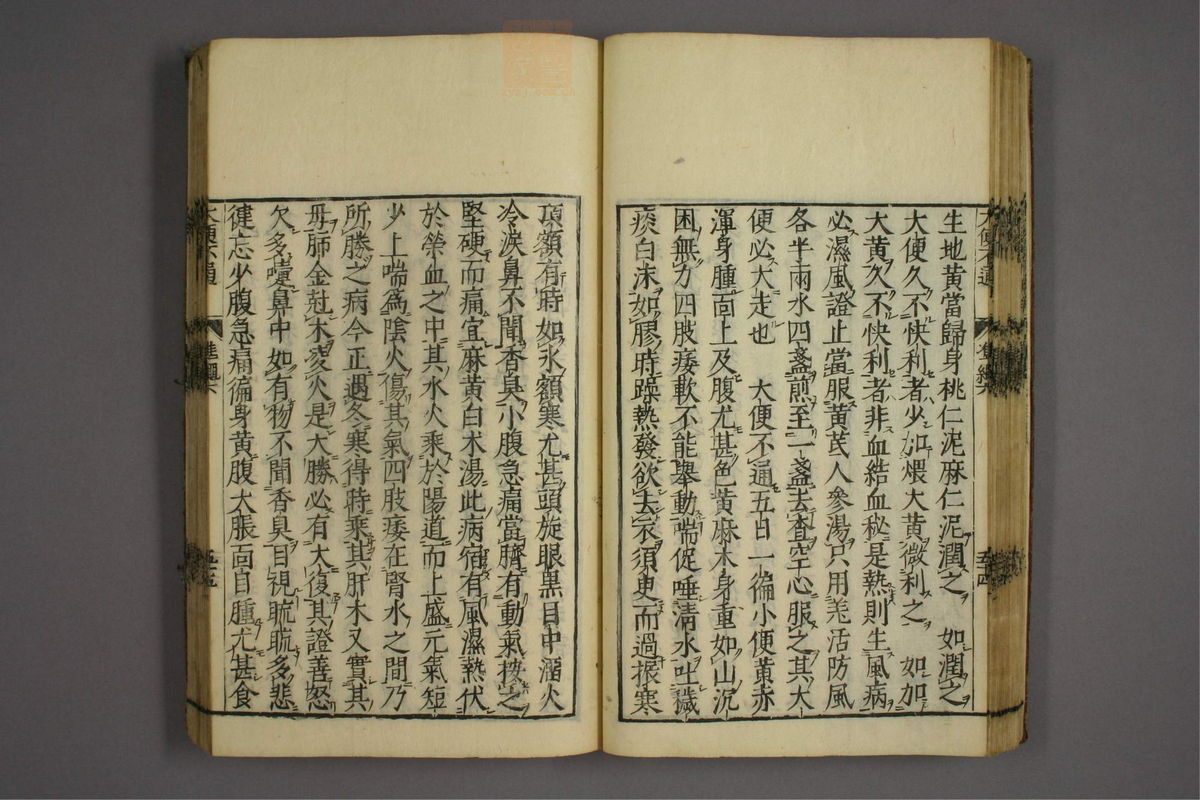 生地黄當歸身桃仁泥麻仁泥潤之　如潤之
大便久不快利者少加煨大黄微利之　如加
大黄久不快利者非血結血秘是熱則生風病
必濕風證止當服黄芪人參湯只用羌活防風
各半兩水四盞煎至一盞去査空心服之其大
便必大走也　大便不通五日一徧小便黄赤
渾身腫面上及腹尤甚色黄麻木身重如山沉
困無力四肢痿軟不能舉動喘促唾清水吐穢
痰白沫如膠時躁熱發欲去衣須臾而過振寒
項額有時如氷額寒尤甚頭旋眼黒目中溜火
冷淚鼻不聞香臭小腹急痛當臍有動氣按之
堅硬而痛宜麻黄白术湯此病宿有風濕熱伏
於榮血之中其水火乘於陽道而上盛元氣短
少上喘爲陰火傷其氣四肢痿在腎水之間乃
所勝之病今正遇冬寒得時乘其肝木又實其
母肺金尅木凌火是大勝必有大復其證善怒
欠多嚏鼻中如有物不聞香臭目視䀮䀮多悲
健忘少腹急痛徧身黄腹大脹面目腫尤甚食
大便不通
五十五
大便不通
五十四